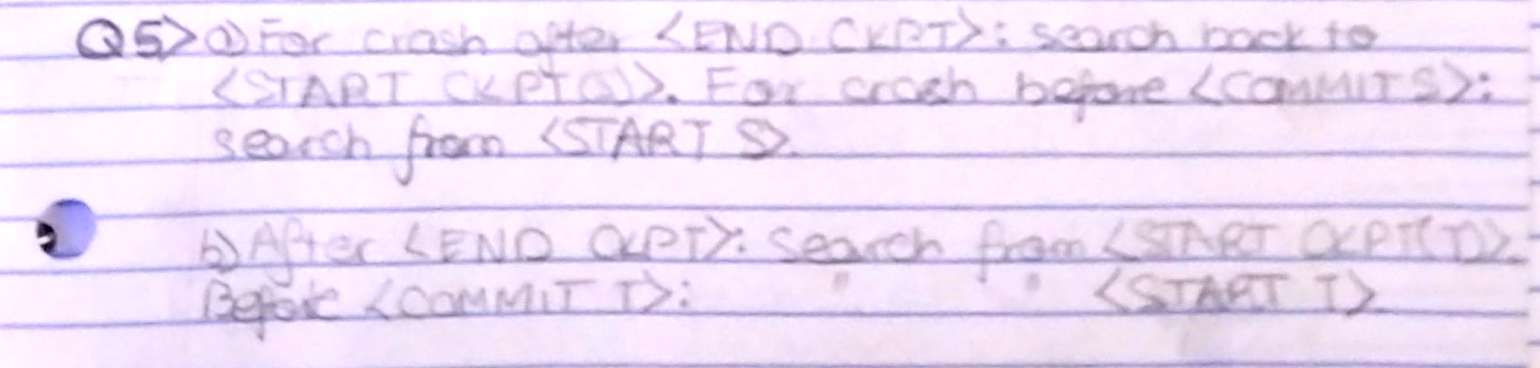 Q5> a) For crash after <END CKPT>: search back to
<START CKPT(S)>. For crash before <COMMIT S>:
search from <START S>.
b) After <END CKPT>: search from <START CKPT(T)>.
Before <COMMIT T>: " " <START T>